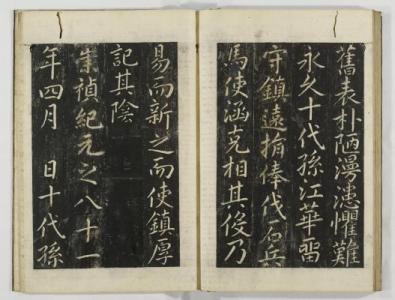 舊表朴陋漫漶懼難
永久十代孫江華留
守鎮遠捐俸伐石兵
馬使涵克相其役乃
易而新之而使鎮厚
記其陰
崇禎紀元之八十一
年四月　日十代孫